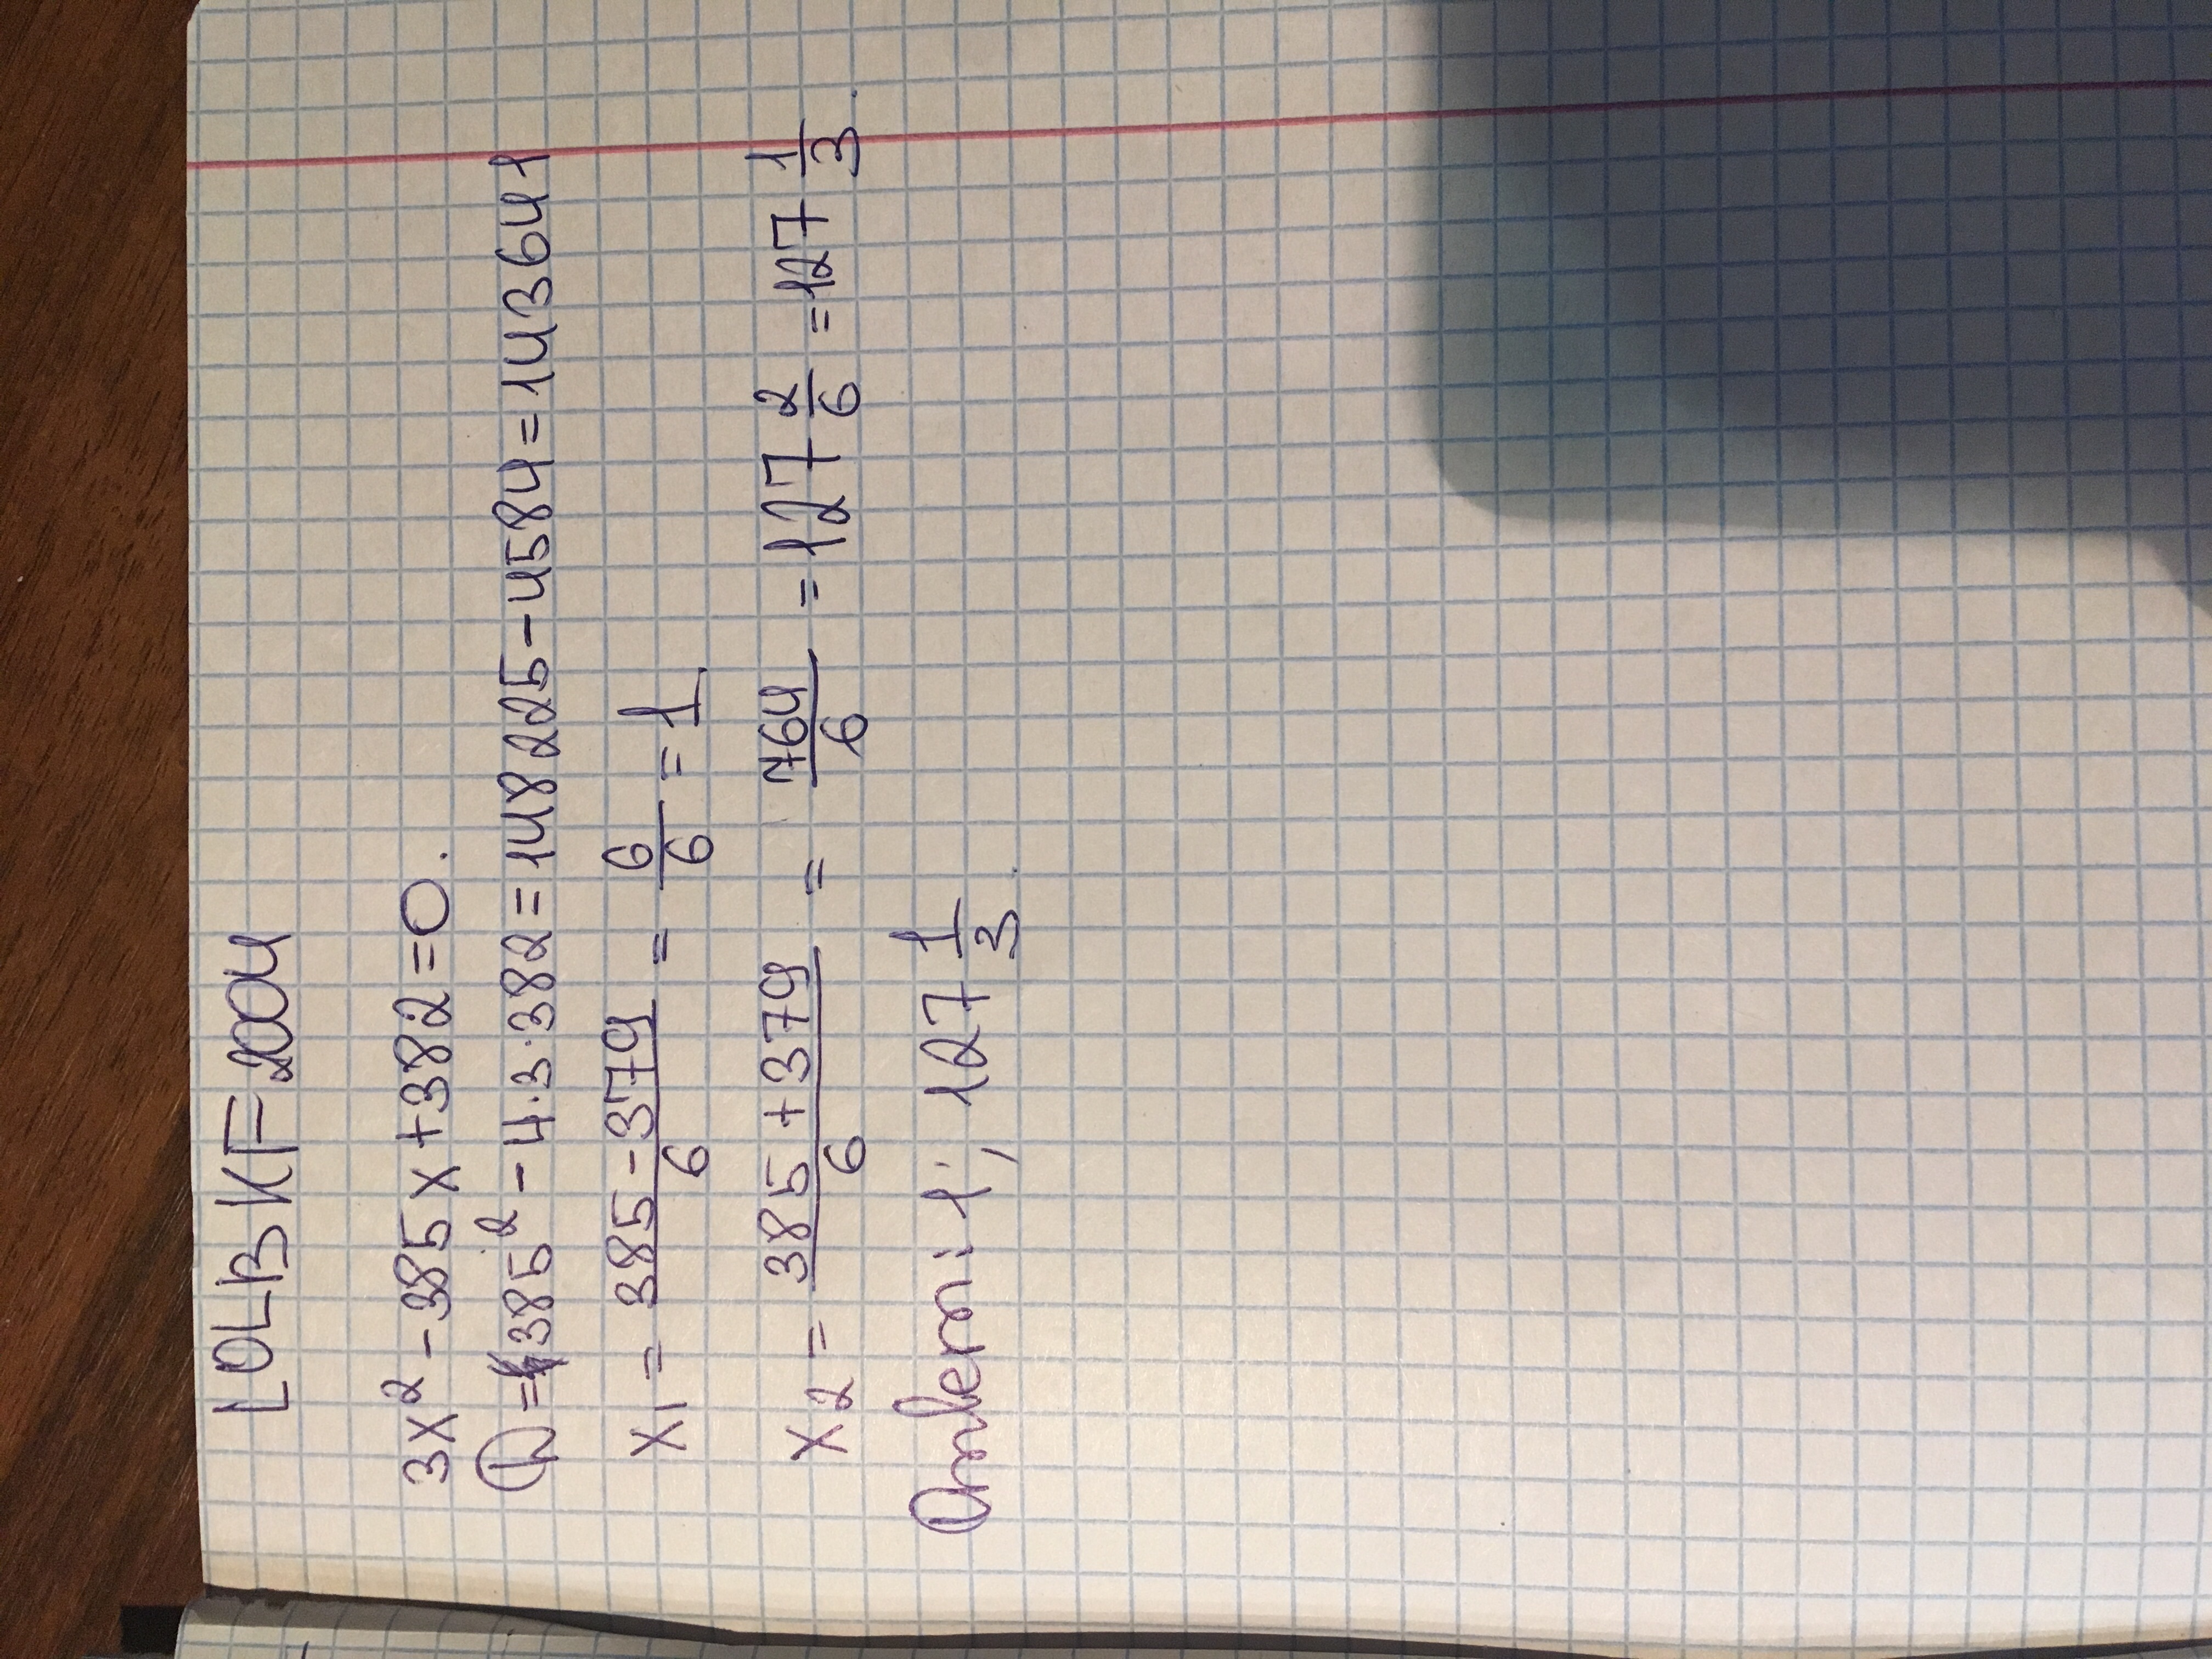 LOLBKF2004
3x² - 385x + 382 = 0.
D = 385² - 4·3·382 = 148225 - 4584 = 143641
x₁ = (385 - 379)/6 = 6/6 = 1
x₂ = (385 + 379)/6 = 764/6 = 127 2/6 = 127 1/3.
Ответ: 1; 127 1/3.